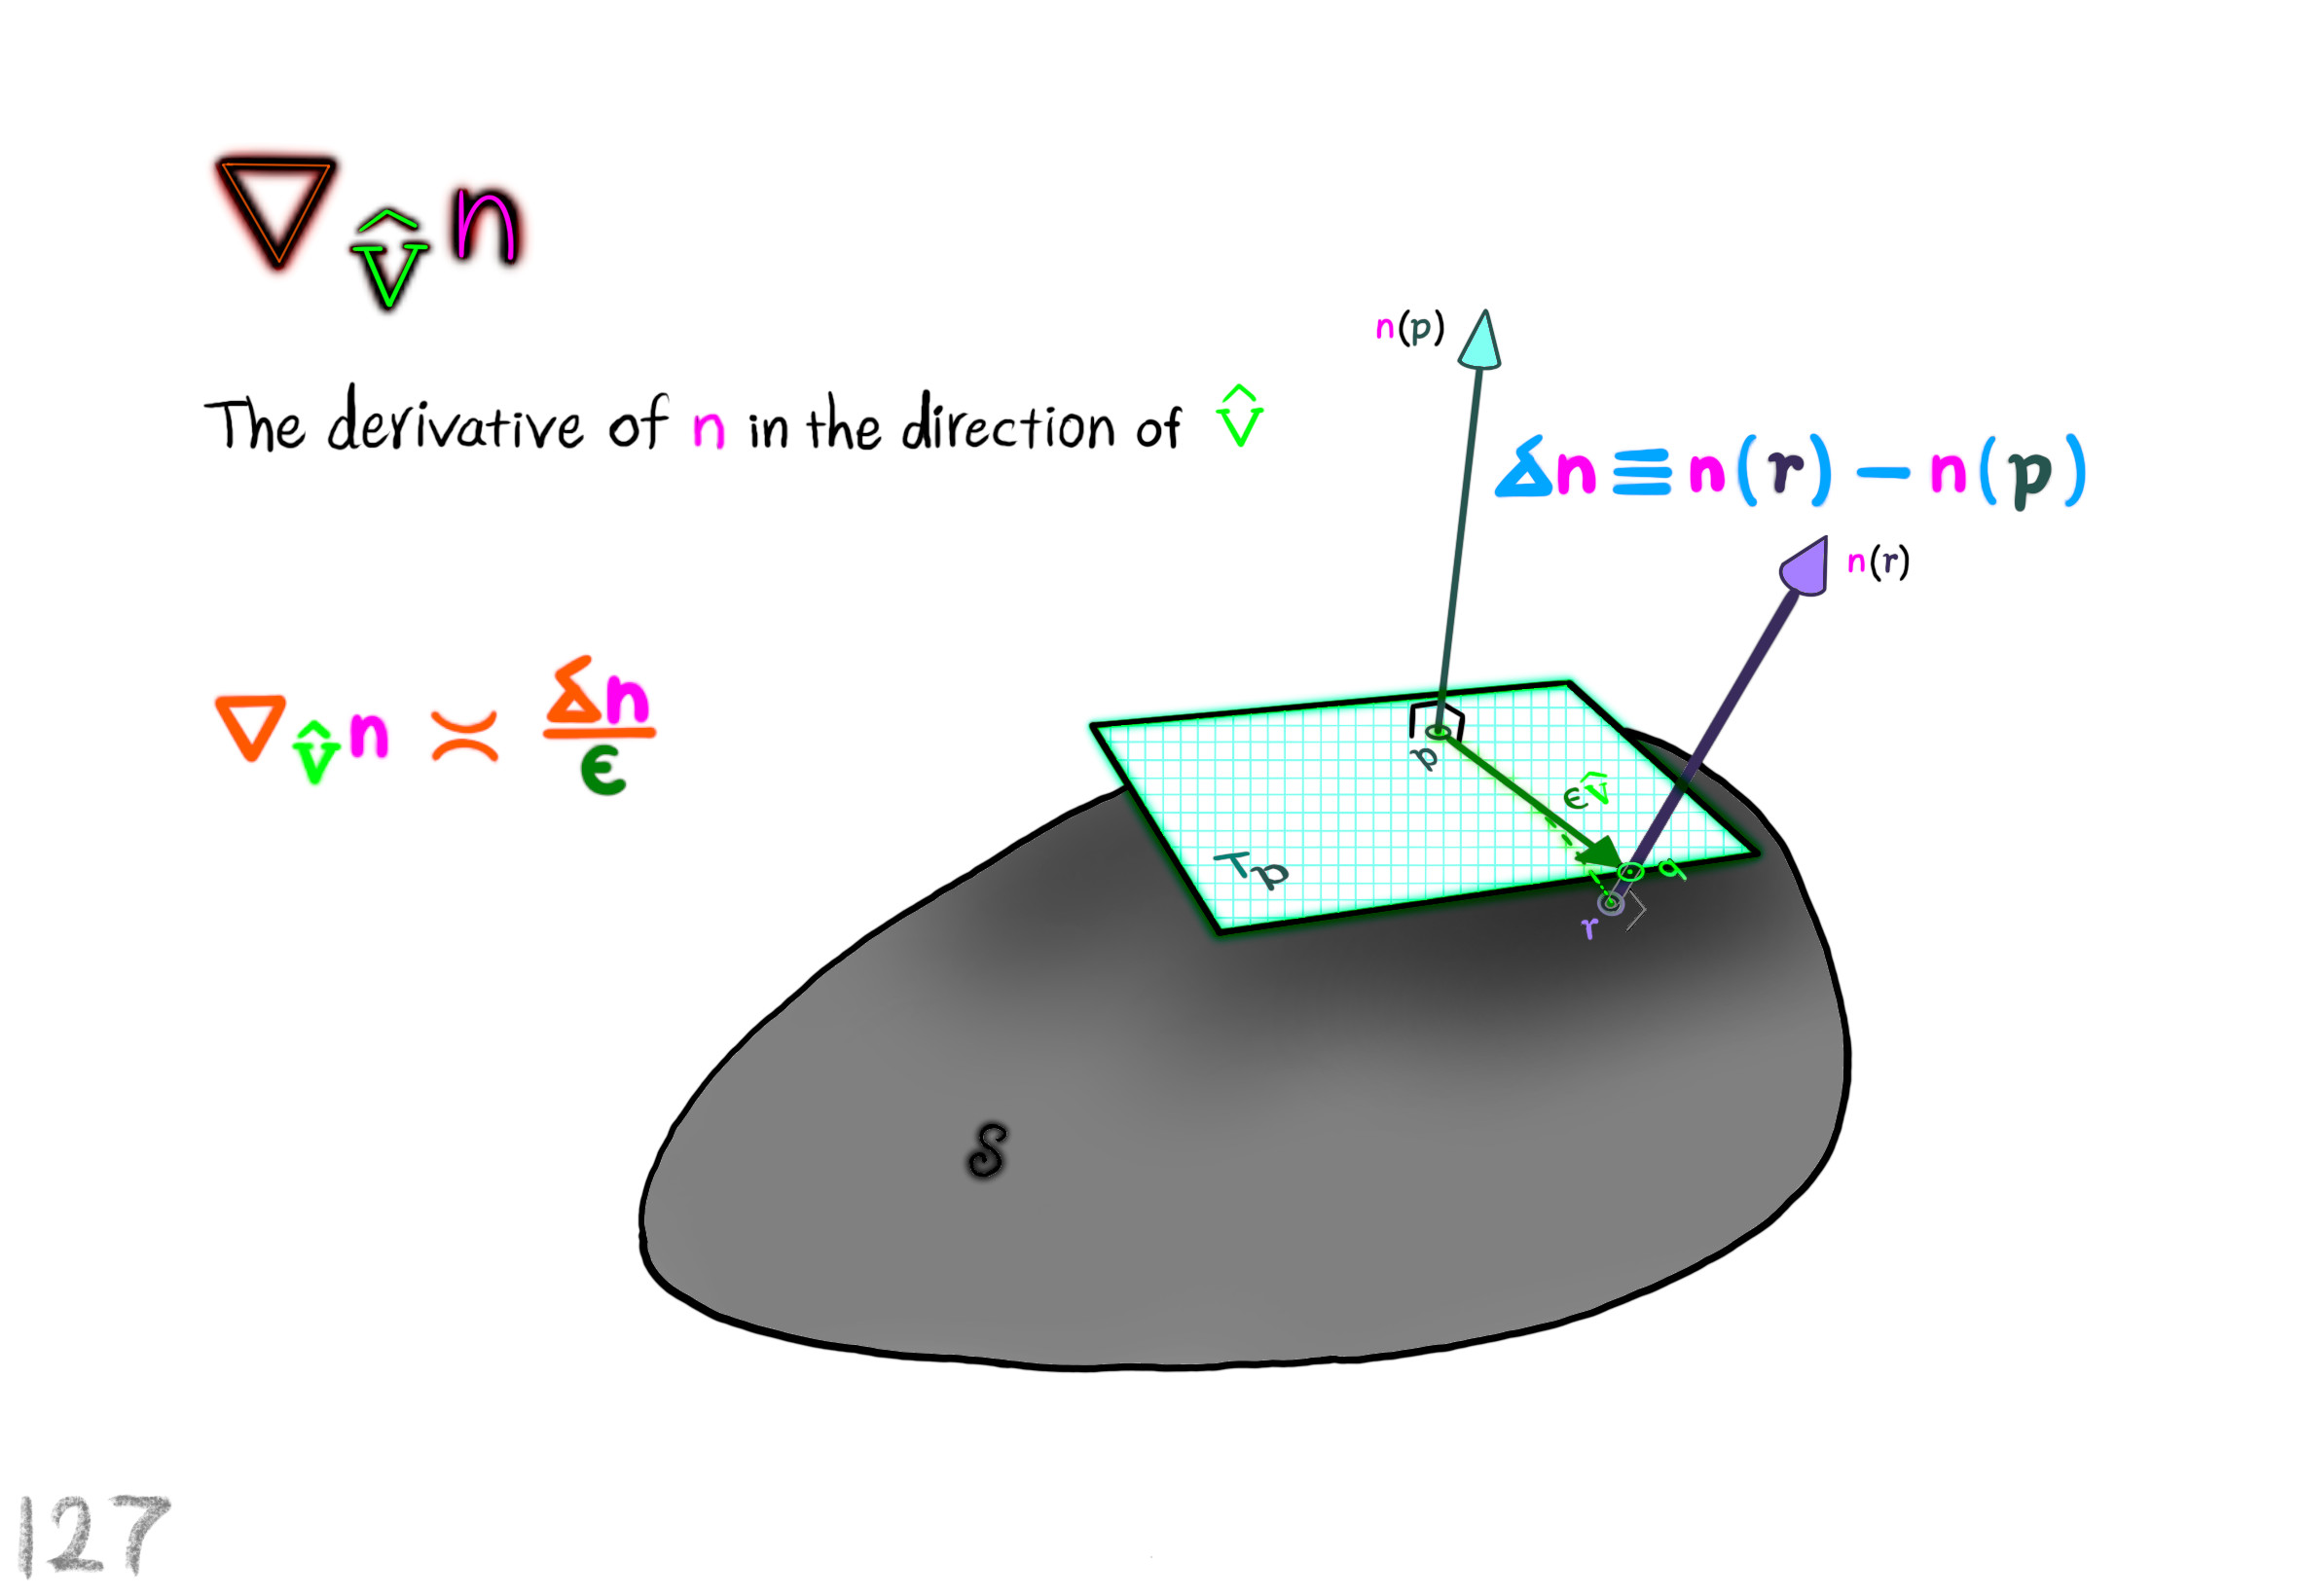 ∇_v̂ n
The derivative of n in the direction of v̂
n(p)
δn ≡ n(r) − n(p)
n(r)
∇_v̂ n ≍ δn/ϵ
p
ϵv̂
T_p
q
r
S
127